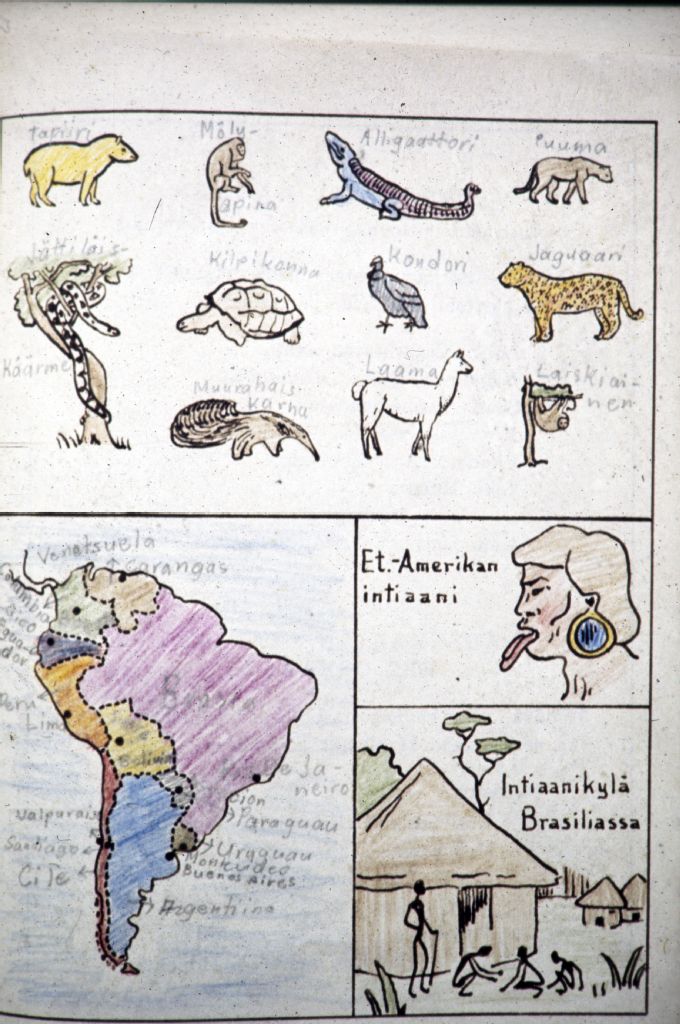 tapiiri
Möly-
apina
Alligaattori
Puuma
Jättiläis-
Käärme
Kilpikonna
Kondori
Jaguaari
Muurahais
Karhu
Laama
Laiskiai-
nen
Venetsuela
Carangas
Peru
Lima
Brasilia
Bolivia
de Ja-
neiro
Paraguau
Valparais
Santiago
Cile
Uruguau
Montevideo
Buenos Aires
Argentiina
Et.-Amerikan
intiaani
Intiaanikylä
Brasiliassa